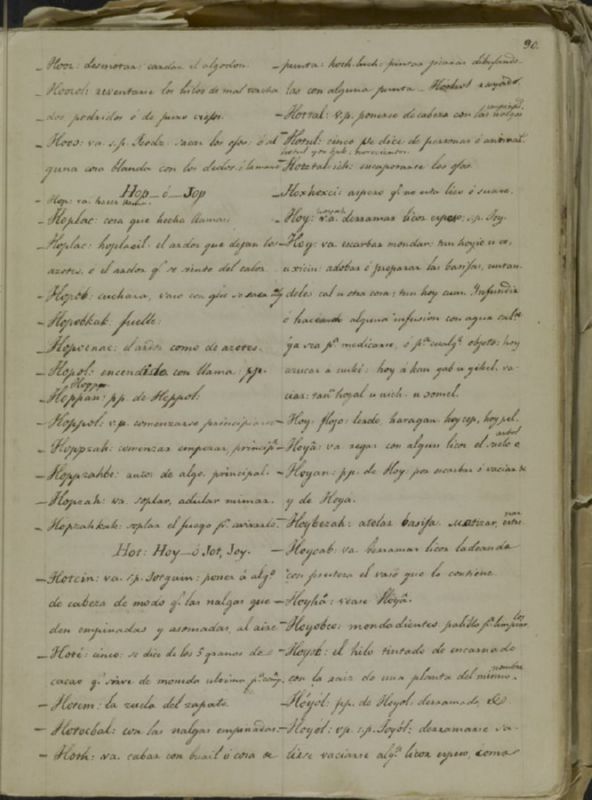 90.
– Hooz: desmotar: cardar el algodon.
– Hoozol: reventarse los hilos de mal
dos podridos ó de puro crespo.
– Hoos: va. s.p. sacar los ojos: ó al
guna cosa blanda con los dedos
Hop – ó – Jop
– Hop: va. hacer llama.
– Hoplac: cosa que hecha llamas
– Hoplac: hoplacil: el ardor que dejan los
azotes, o el ardor q.e se siente del calor.
– Hopob: cuchara, vaso con q.e se saca
– Hopobkak. fuelle.
– el ardor como de azotes.
– Hopol: encendido con llama: pp.
– Heppan: pp. de Heppol:
– Hoppol: v.p. comenzarse principiarse
– Hoppzah: comenzar empezar, princip.r
– Hoppzahbe: autor de algo, principal.
– Hopzah: va. soplar, adular
– Hopzahkak: soplar el fuego p.a avivarlo.
Hot: Hoy – ó Jot, Joy.
– Hotcin: va. s.p. poner á alg.o
de cabeza de modo q.e las nalgas que
den empinadas y asomadas, al aire
– Hoté: cinco: se dice de los 5 granos de
cacao q.e sirve de moneda
– Hotem: la suela del zapato.
– Hotocbal: con las nalgas empinadas.
– Hoth: va. cabar con buril ó cosa de
punta: hoch.buch: pintar dibujando
las con alguna punta.
– Hottal: v.p. ponerse de cabeza con las nalgas
– Hotul: cinco se dice de personas ó animal.
– Hotztal.ich: encaporarse los ojos.
– Hexhexci: aspero q.e no esta liso ó suave.
– Hoy: va. derramar licor espeso: s.p. Joy.
– Hoy: va escarbar mondar: tun hoyic u co,
u xicin: adobar ó preparar las basijas, untan
doles cal u otra cosa: tun hoy cum. Infundir
ó haciendo alguna infusion con agua cal.te
ya sea p.a medicarse, ó p.a cualq.r objeto: hoy
azucar á ó kan gab u yikel. va
ciar: tan hoyal u nich. u somel.
– Hoy: flojo: lerdo, haragan: hoy cep, hoy pel.
– Hoyá: va regar con algun licor el suelo o arbol
– Hoyan: pp. de Hoy por escarbar ó vaciar &
y de Hoya.
– Hoybezah: atolar basija.
– Hoycab: va. derramar licor ladeando
con presteza el vaso que lo contiene
– Hoyhá: vease Hoyá.
– Hoyobco: mondadientes palillo p.a limpiar los
– Hoyob: el hilo tintado de encarnado
con la raiz de una planta del mismo nombre
– Hóyol: pp. de Heyol: derramado, &
– Hoyol: v.p. s.p. Joyól: derramarse va
ciarse alg.n licor espeso, como